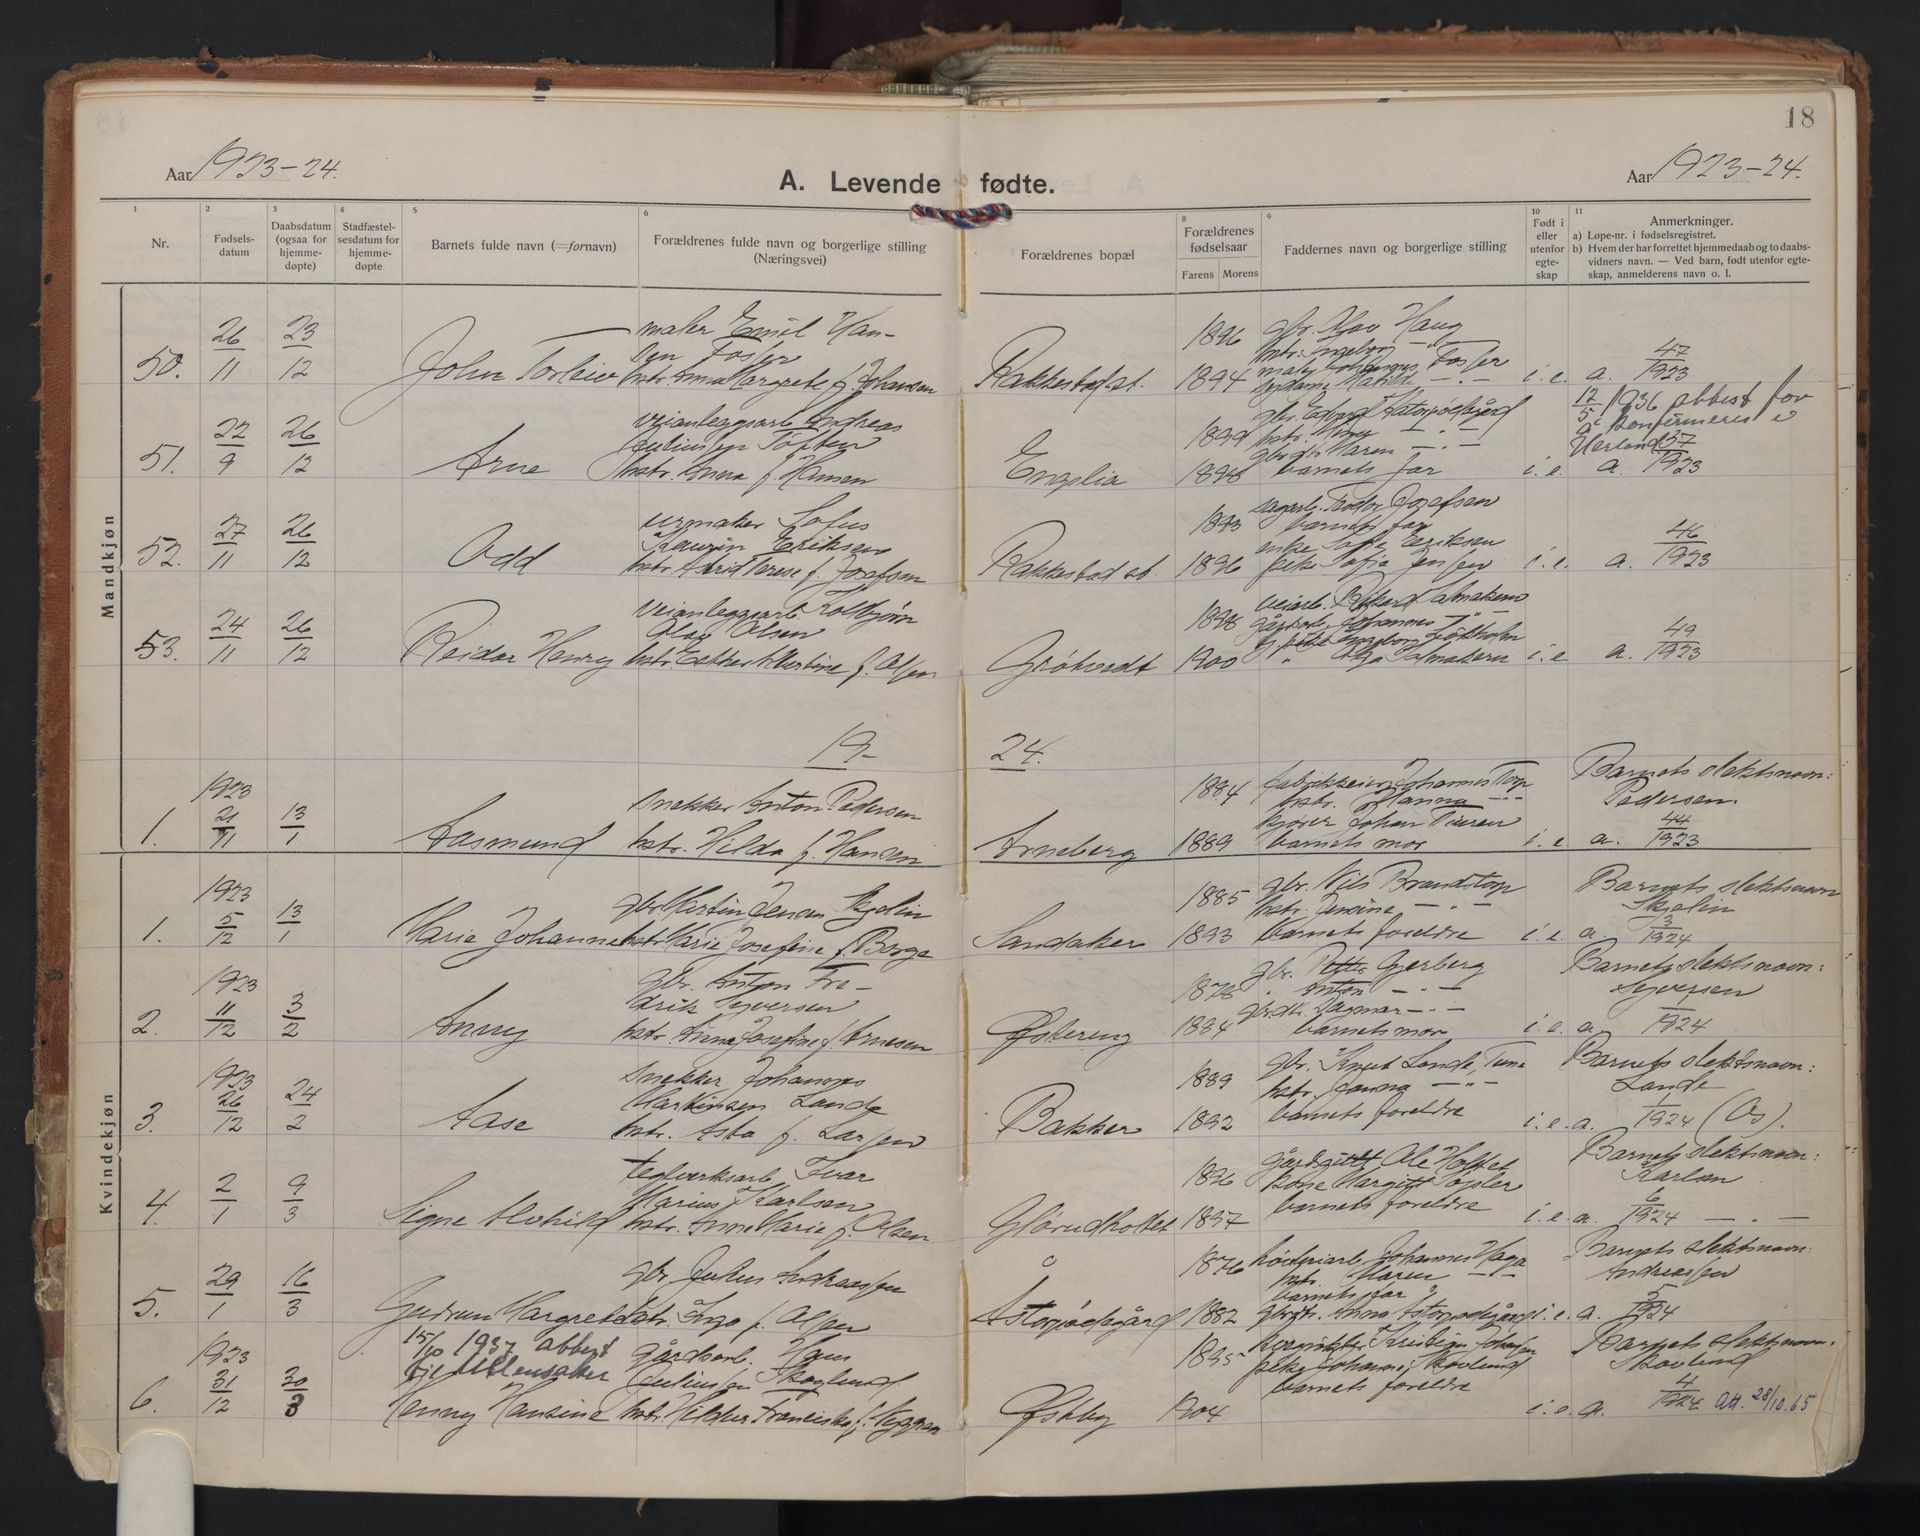 18
Aar 1923-24.
A. Levende fødte.
Aar 1923-24.
1 2 3 4 5 6 8 9 10 11
Nr.
Fødsels-
datum
Daabsdatum
(ogsaa for
hjemme-
døpte)
Stadfæstel-
sesdatum for
hjemme-
døpte
Barnets fulde navn (=fornavn)
Forældrenes fulde navn og borgerlige stilling
(Næringsvei)
Forældrenes bopæl
Forældrenes
fødselsaar
Farens Morens
Faddernes navn og borgerlige stilling
Født i
eller
utenfor
egte-
skap
Anmerkninger.
a) Løpe-nr. i fødselsregistret.
b) Hvem der har forrettet hjemmedaab og to daabs-
vidners navn. — Ved barn, født utenfor egte-
skap, anmelderens navn o. l.
Mandkjøn
50. 26/11 23/12 John Torleiv
maler Emil Han-
sen Fosser
hstr. Anna Margrete f. Johansen
Rakkestad st.
1896
1894
gbr. Olav Haug
hstr. Ingeborg —"—
i.e. a. 47/1923
51. 22/9 26/12 Arne
veianleggsarb. Andreas
Juliussen Toften
hstr. Anna f. Hansen
Englia
1899
1898
barnets far
i.e.
12/5 1936 attest for
å konfirmeres i
a. 37/1923
52. 27/11 26/12 Odd
urmaker Sofus
Eriksen
hstr. Astrid Terese f. Josefsen
Rakkestad st.
1893
1896
sagarb. Teodor Josefsen
barnets far
enke Sofie Eriksen
pike Sofie Jensen
i.e. a. 46/1923
53. 24/11 26/12 Reidar Henry
veianleggsarb. Kolbjørn
Olav Olsen
hstr. Esther Albertine f. Olsen
Grøhuset
1898
1900
i.e a. 49/1923
19-24.
1. 1923 21/11 13/1 Aasmund
snekker Anton Pedersen
hstr. Hilda f. Hansen
Arneberg
1884
1889
fabrikkeier Johannes Torp
hstr. Hanna —"—
kjører Johan Turen
barnets mor
i.e
Barnets slektsnavn:
Pedersen.
a. 44/1923
Kvindekjøn
1. 1923 5/12 13/1 Marie Johanne
gbr. Martin Jensen Skjelin
hstr. Marie Josefine f. Berge
Sandaker
1885
1893
gbr. Nils Brandstorp
hstr. Jensine —"—
barnets foreldre
i.e.
Barnets slektsnavn
Skjelin
a. 3/1924
2. 1923 11/12 3/2 Anny
gbr. Anton Fre-
drik Syversen
hstr. Anna Josefine f. Arnesen
Østereng
1878
1884
gbr. Petter Gjerberg
" Anton —"—
gbr.dtr. Dagmar —"—
barnets mor
i.e
Barnets slektsnavn:
Syversen
a. 1/1924
3. 1923 26/12 24/2 Aase
snekker Johannes
Martinsen Lande
hstr. Asta f. Larsen
Bakker
1889
1892
gbr. Knut Lande, Tune
hstr. Janna —"—
barnets foreldre
i.e.
Barnets slektsnavn:
Lande
a. 1/1924 (Os).
4. 2/1 9/3 Signe Alvhild
teglverksarb. Ivar
Marius Karlsen
hstr. Anne Marie f. Olsen
Glørudholtet
1896
1897
barnets foreldre
i.e.
Barnets slektsnavn:
Karlsen
a. 6/1924 —"—
5. 29/1 16/3 Gudrun Margrete
gbr. Julius Andreassen
hstr. Inga f. Olsen
Å
Åstorpødegård
1876
1882
Johannes Haga
hstr. Maren —"—
barnets far
gbr.dtr. Anna Åstorpødegård
i.e.
Barnets slektsnavn:
Andreassen
a. 5/1924
6. 1923 31/12 30/3 Henny Hansine
15/10 1937 attest
til Ullensaker
gårdsarb. Hans
Juliussen Skoglund
Østby
1895
1904
pike Johanne Skovlund
barnets foreldre
i.e.
Barnets slektsnavn:
Skovlund
a. 4/1924 Att. 28/10.65